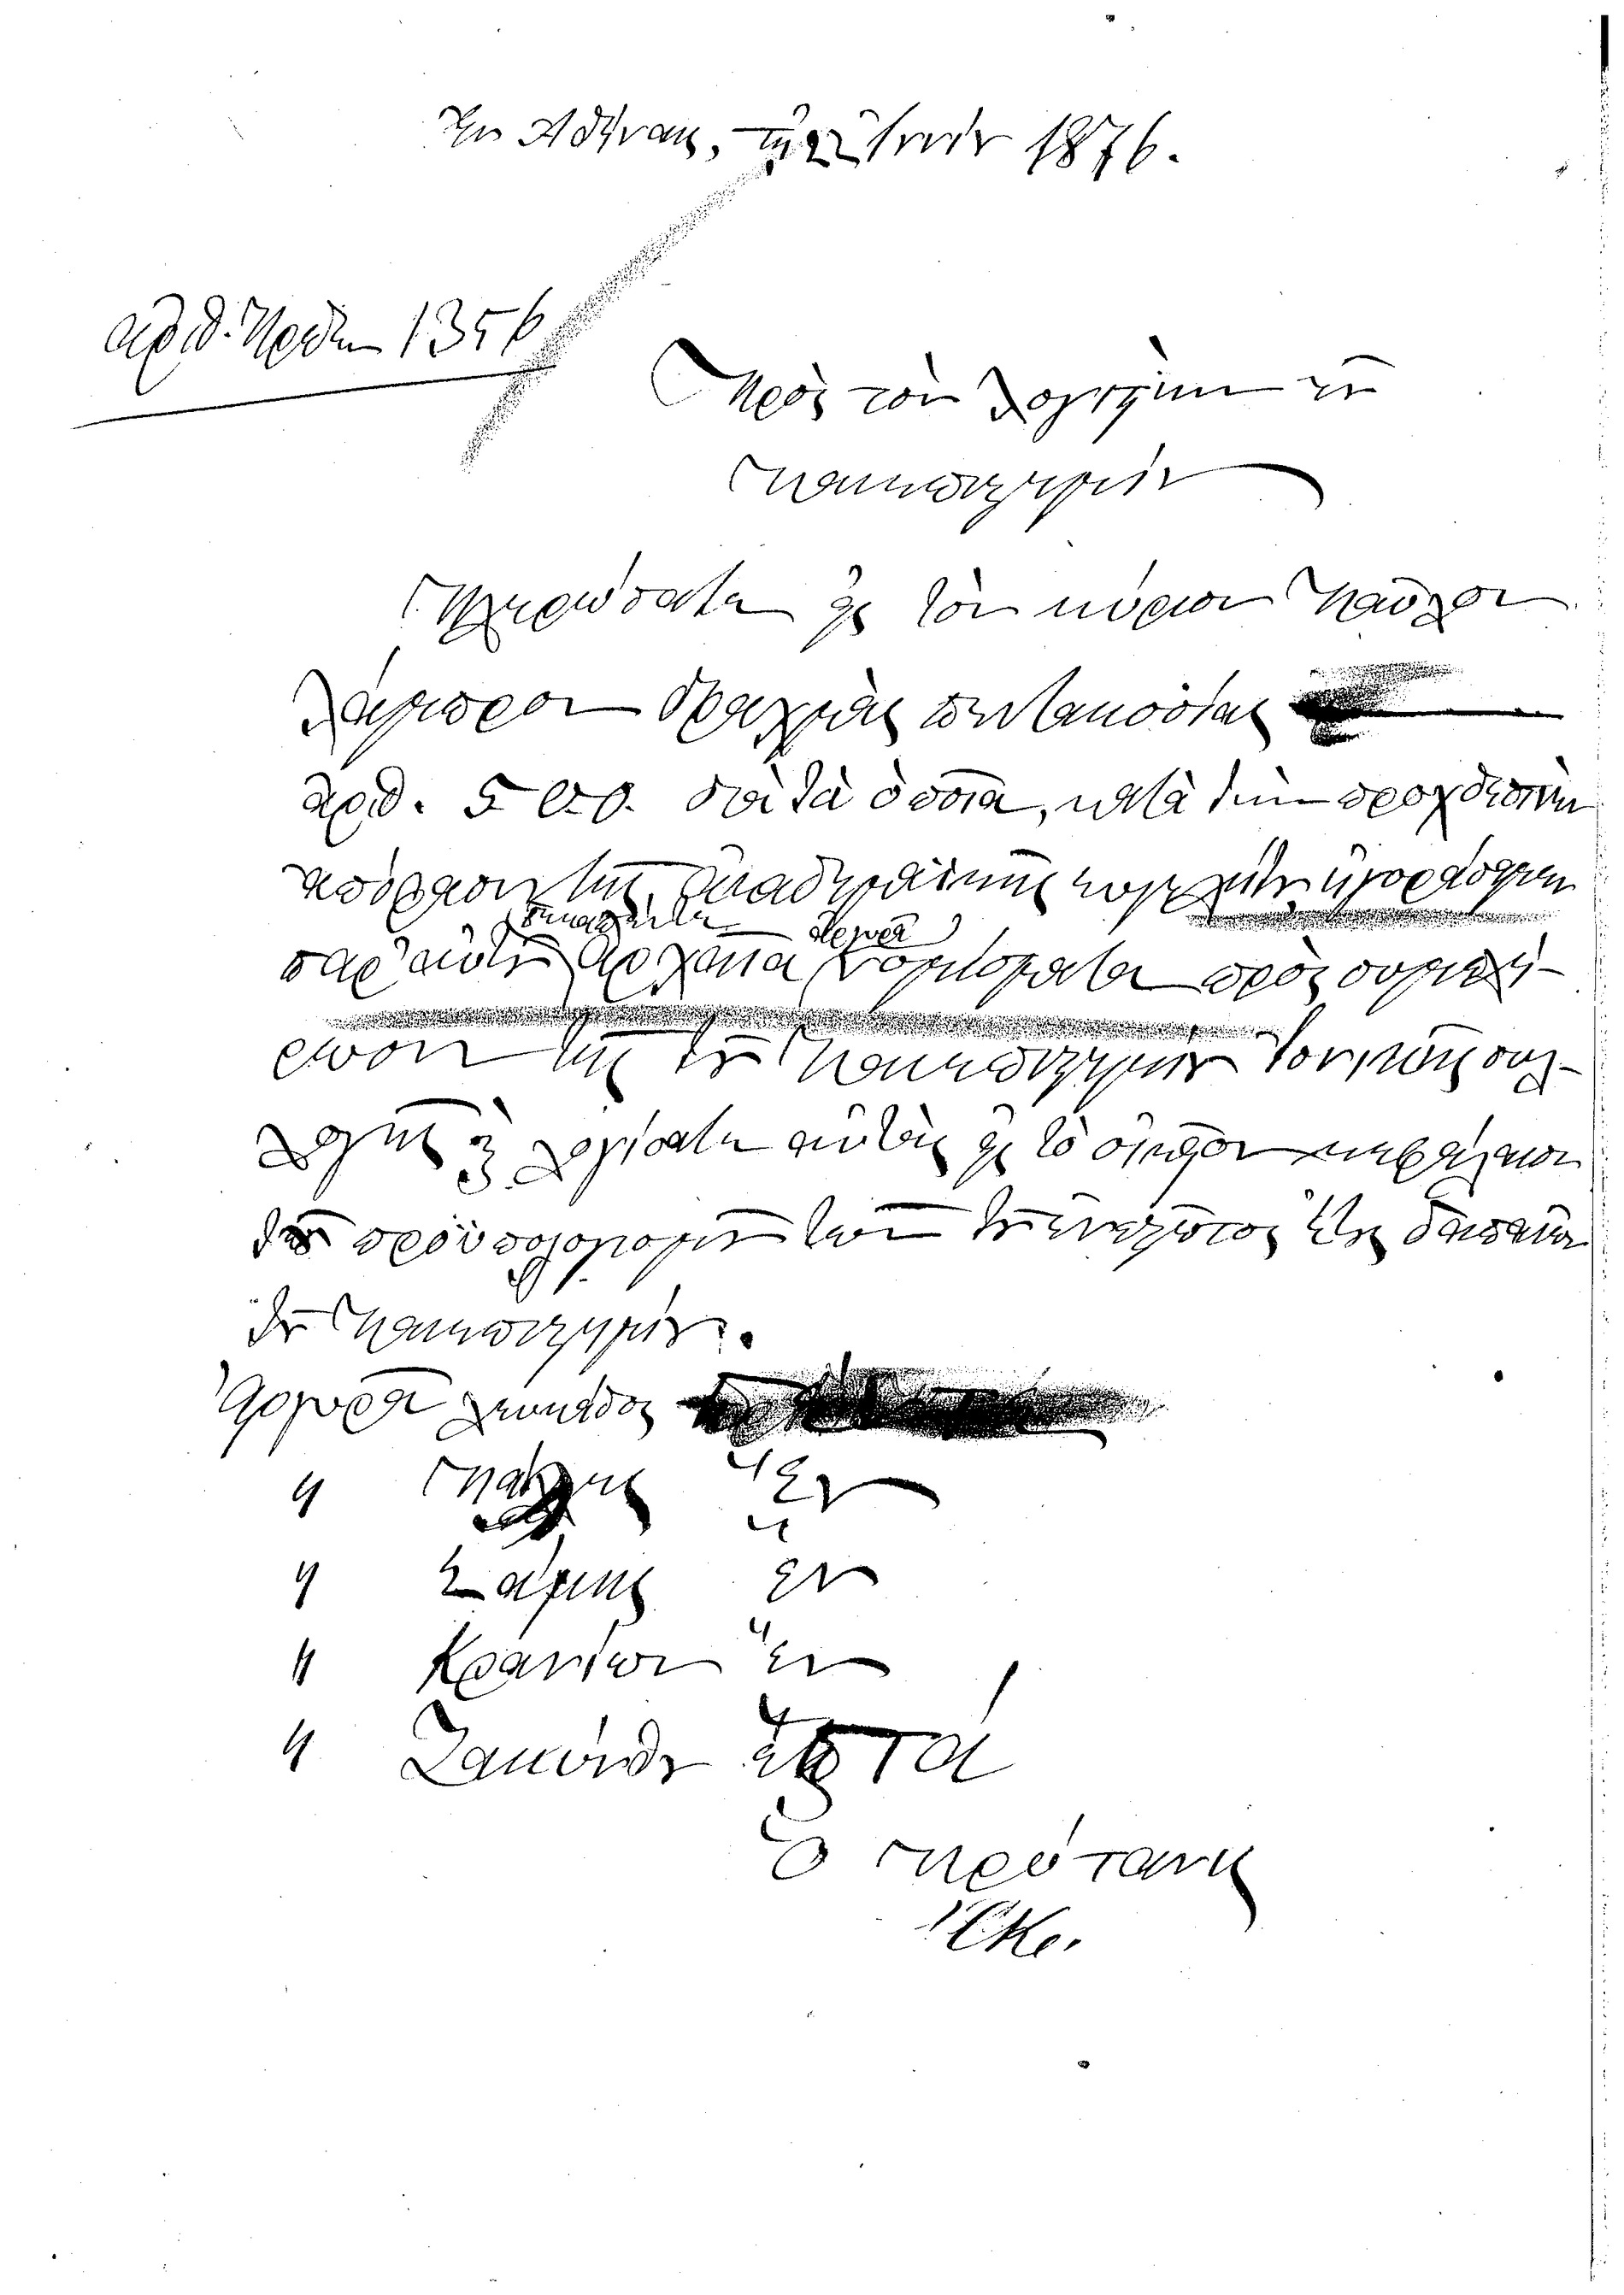 Ἐν Ἀθήναις, τῇ 22 Ἰουν 1876.
ἀριθ. Πρωτ. 1356
Πρὸς τὸν Λογιστὴν τοῦ
Πανεπιστημίου
Πληρώσατε εἰς τὸν κύριον Παῦλον
Λάμπρον δραχμὰς πεντακοσίας
ἀριθ. 500. διὰ τὰ ὁποῖα, κατὰ τὴν προχθεσινὴν
ἀπόφασιν τῆς Ἀκαδημαϊκῆς
παρ' αὐτοῦ ἀρχαῖα ἀργυρᾶ νομίσματα πρὸς συμπλή-
ρωσιν τῆς τοῦ Πανεπιστημίου νομισμ. συλ-
λογῆς καὶ λογίσατε αὐτὰς εἰς τὸ οἰκεῖον κεφάλαιον
τοῦ προϋπολογισμοῦ τῶν τοῦ ἐνεστῶτος ἔτους δαπανῶν
τοῦ Πανεπιστημίου.
Ἀργυρᾶ Λευκάδος
〃 ἕν
〃 Σάμης ἕν
〃 Κρανίων ἕν
〃 Ζακύνθου ἑπτά
Ὁ Πρύτανις